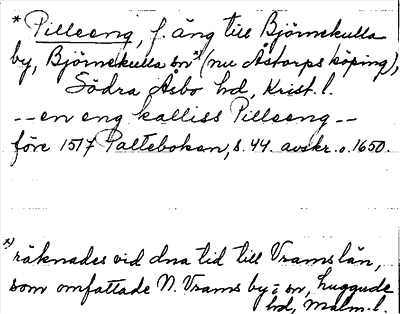 * Pilleeng, f. äng till Björnekulla
by, Björnekulla sn x) (nu Åstorps köping),
Södra Åsbo hd, Krist. l.
-- en eng kalliss Pilleeng --
före 1517 Paltebokan, s. 44. avskr. o. 1650.
x) räknades vid dna tid till Vramslän,
som omfattade N. Vrams by o sn, Luggude
hd, Malm. l.